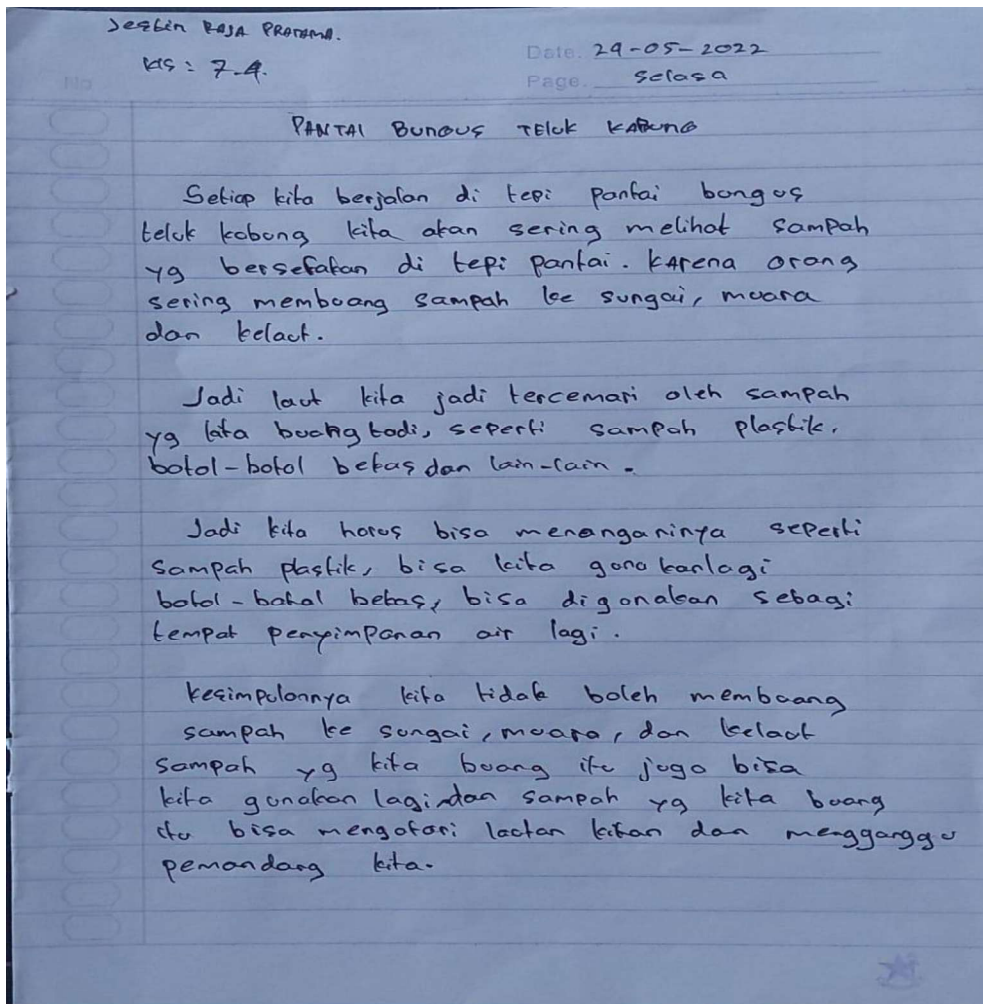 Jestin RAJA PRATAMA.
Kls : 7-4.
No
Date. 24-05-2022
Page. Selasa
PANTAI BUNGUS TELUK KABUNG
Setiap kita berjalan di tepi pantai bungus
teluk kabung kita akan sering melihat sampah
yg berserakan di tepi pantai. Karena orang
sering membuang sampah ke sungai, muara
dan kelaut.
Jadi laut kita jadi tercemari oleh sampah
yg kita buang tadi, seperti sampah plastik,
botol-botol bekas dan lain-lain.
Jadi kita harus bisa menanganinya seperti
sampah plastik, bisa kita guna kanlagi
botol-botol bekas, bisa digunakan sebagi
tempat penyimpanan air lagi.
kesimpulannya kita tidak boleh membuang
sampah ke sungai, muara, dan kelaut
sampah yg kita buang itu juga bisa
kita gunakan lagi dan sampah yg kita buang
itu bisa mengotori lautan kitan dan mengganggu
pemandang kita.